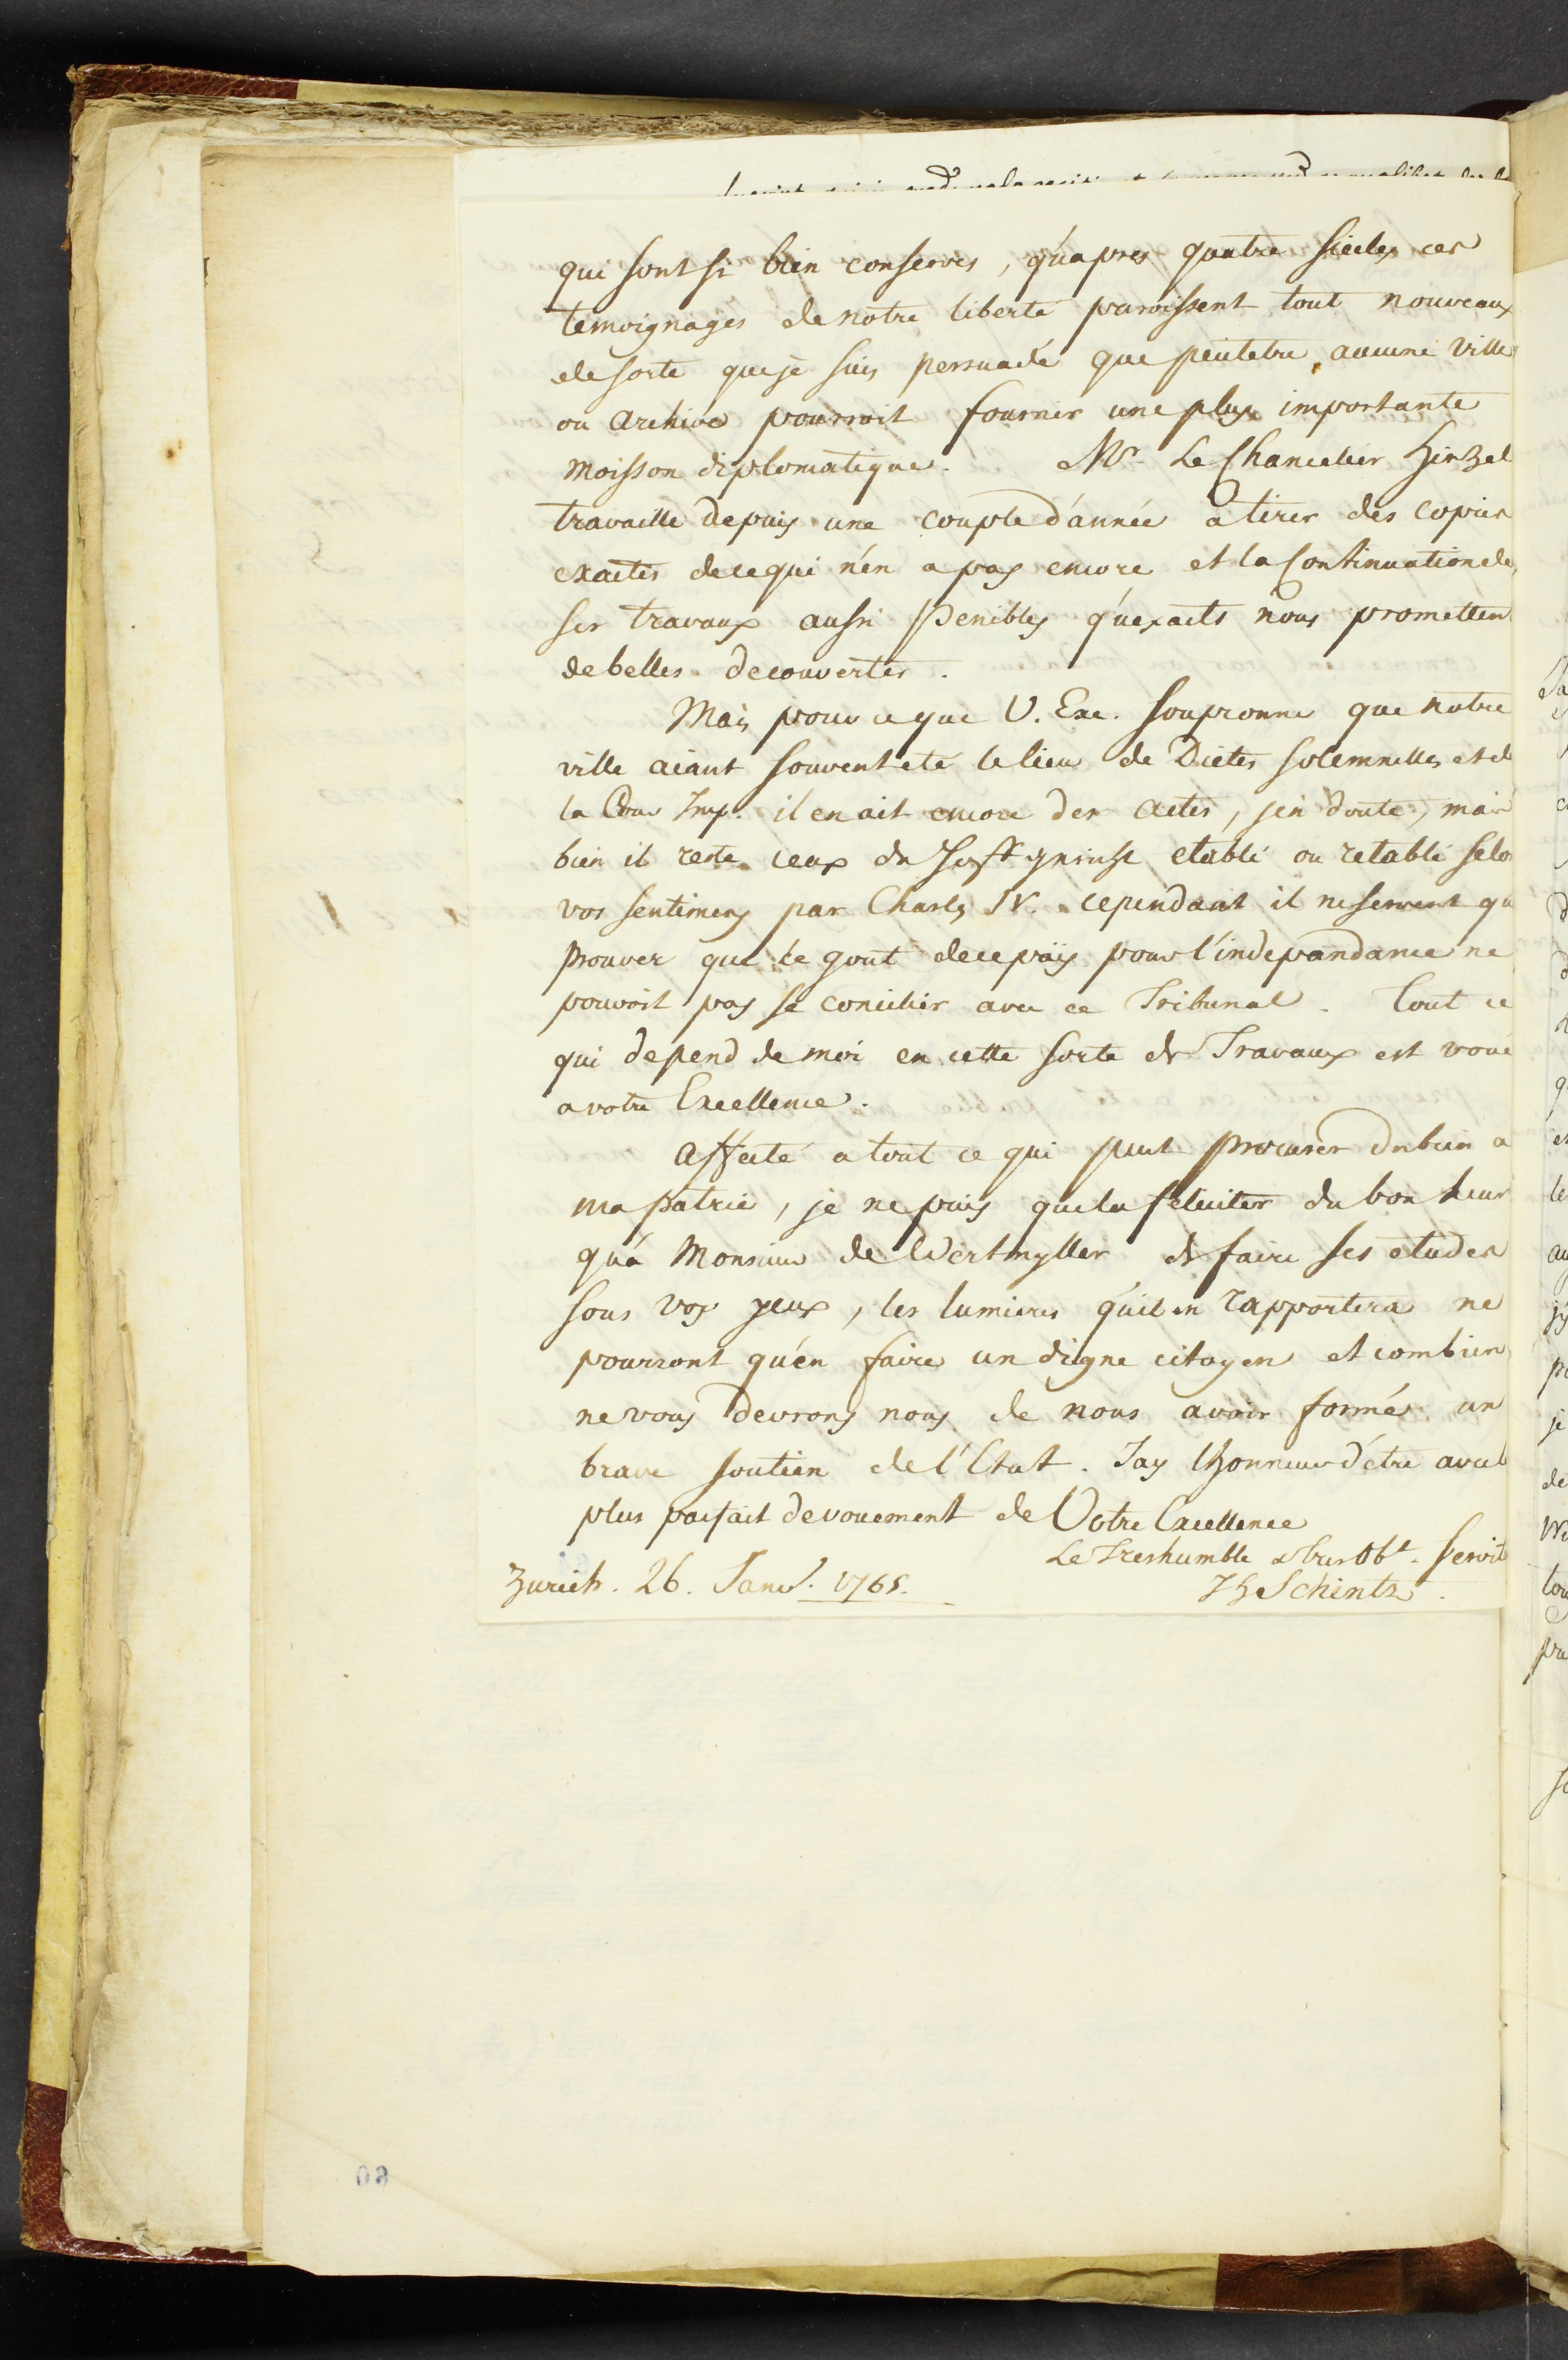 qui sont si bien conserves, qu'apres quatre siecles ces
temoignages de notre liberté paroissent tout nouveaux
desorte que je suis persuadé que peutetre aucune ville
ou archive pourroit fournir une plus importante
moisson diplomatique. Mr. Le Chancelier Hirzel
travaille depuis une couple d'année a tirer des copies
exactes de ce qui n'en a pas encore et la Continuation de
ses travaux aussi penibles qu'exacts nous promettent
de belles decouvertes.
Mais pour ce que V. Exc. soupconne que notre
ville aiant souvent eté le lieu de Dietes solemnelles et de
la Cour Imp. il en ait encore des actes, j'en doute, mais
bien il reste ceux du Hoffgericht etabli ou retabli selo
vos sentimens par Charles IV. cependant il ne servent qu
prouver que le gout de ce païs pour l'independance ne
pouvoit pas se concilier avec ce Tribunal. Tout ce
qui depend de moi en cette sorte de Travaux est voué
a votre Excellence.
Affecté a tout ce qui peut procurer du bien a
ma patrie, je ne puis que la feliciter du bonheur
qu'a Monsieur de Wertmyller de faire ses etudes
sous vos yeux, les lumieres qu'il en rapportera ne
pourront qu'en faire un digne citoyen et combien
ne vous devrons nous de nous avoir formé un
brave soutien de l'Etat. Jay lhonneur d'etre avec l
plus parfait devouement de Votre Excellence
Le Treshumble & tres Obt. Servit
Zurich. 26. Janv. 1765. JHSchintz.
60